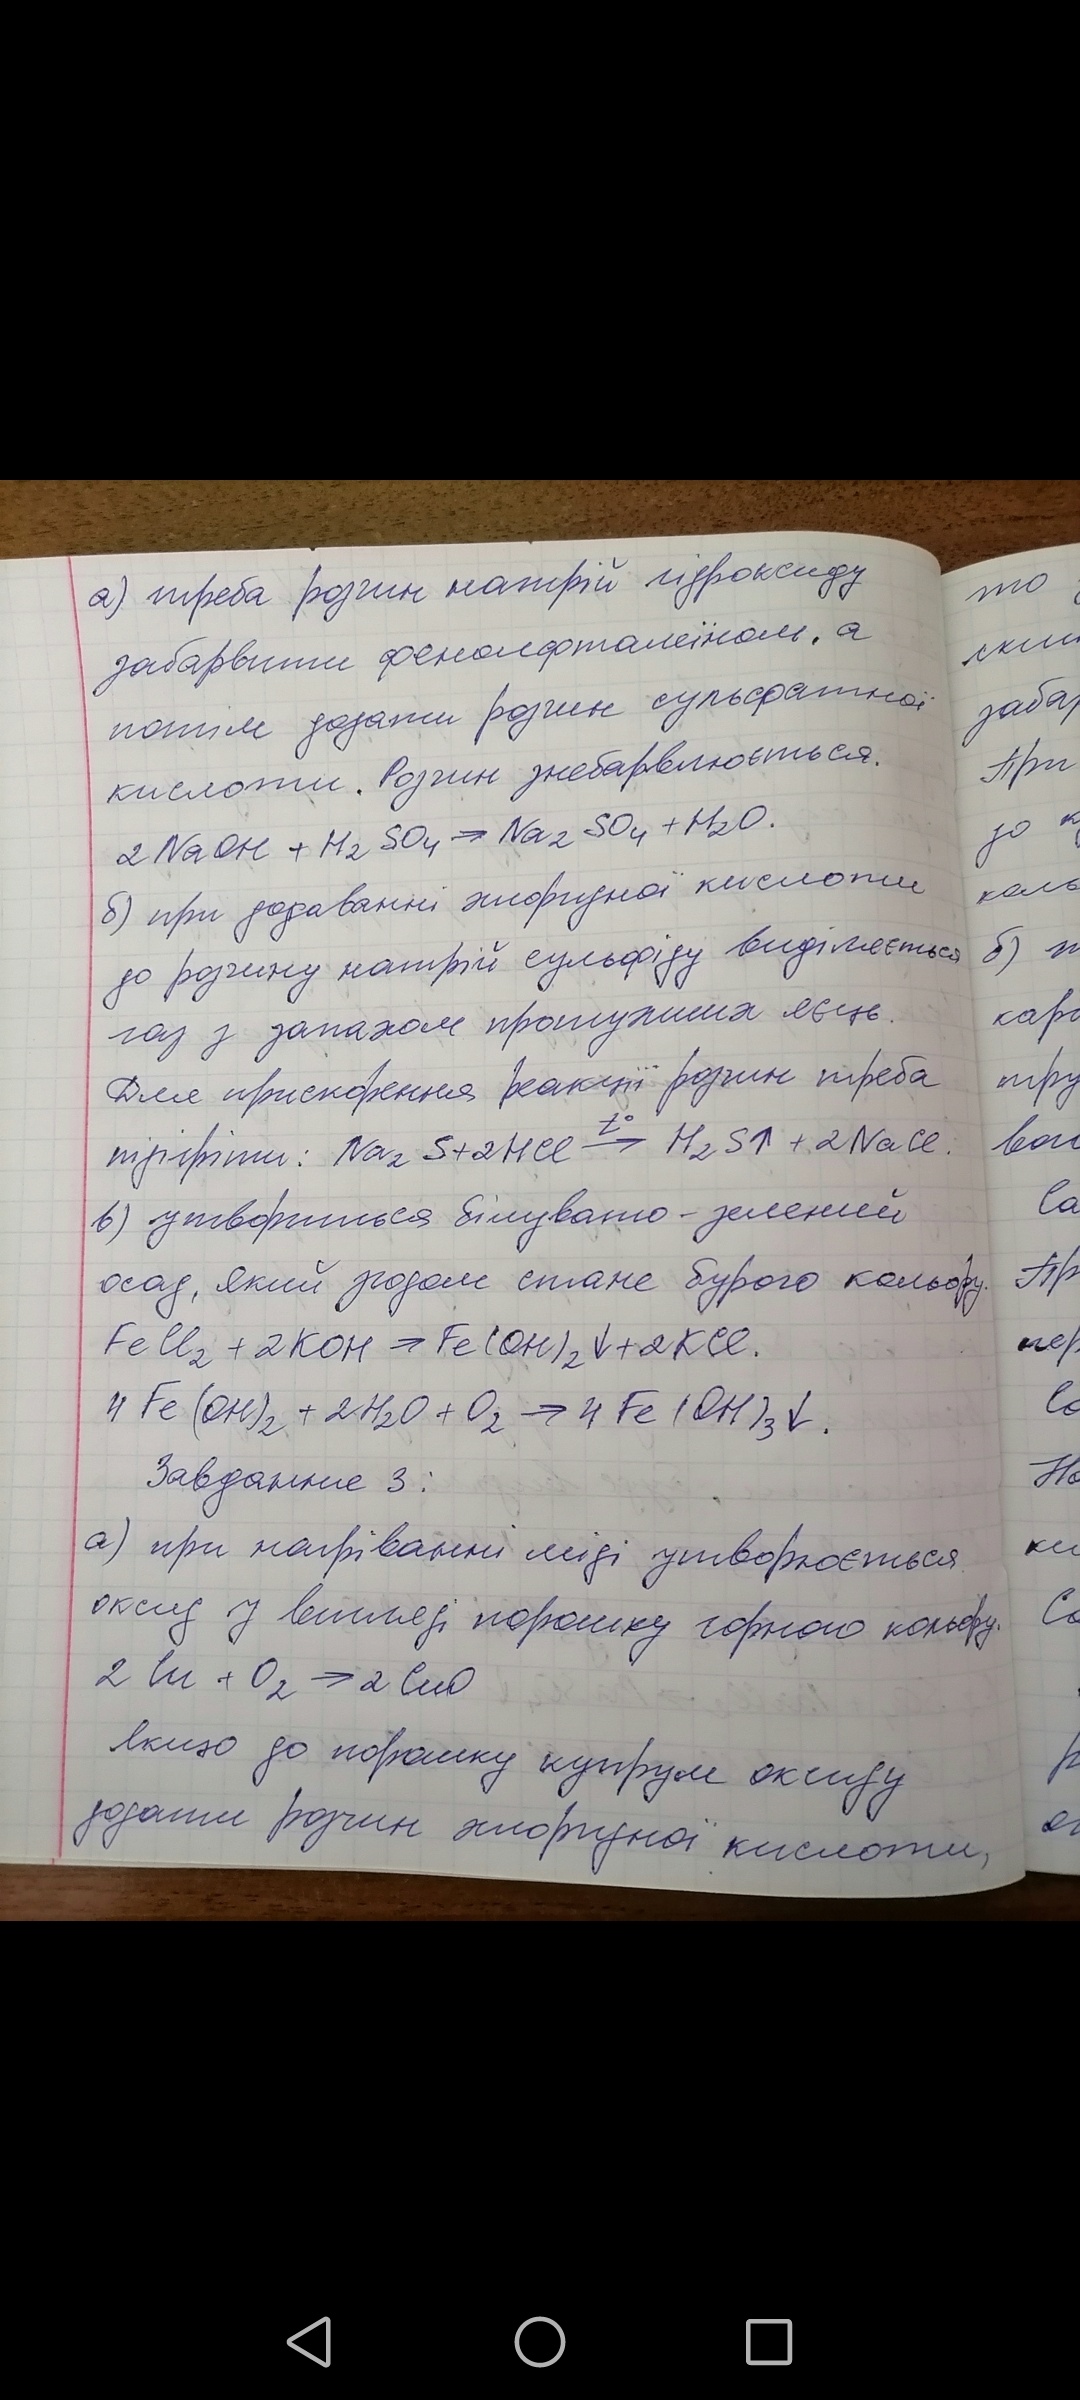 а) треба розчин натрій гідроксиду
забарвити фенолфталеїном, а
потім додати розчин сульфатної
кислоти. Розчин знебарвлюється.
2NaOH + H₂SO₄ → Na₂SO₄ + H₂O.
б) при додаванні хлоридної кислоти
до розчину натрій сульфіду виділяється
газ з запахом протухших яєць.
Для прискорення реакції розчин треба
підігріти: Na₂S + 2HCl →t° H₂S↑ + 2NaCl.
в) утвориться білувато-зелений
осад, який згодом стане бурого кольору.
FeCl₂ + 2KOH → Fe(OH)₂↓ + 2KCl.
4Fe(OH)₂ + 2H₂O + O₂ → 4Fe(OH)₃↓.
Завдання 3:
а) при нагріванні міді утворюється
оксид у вигляді порошку чорного кольору.
2Cu + O₂ → 2CuO
якщо до порошку купрум оксиду
додати розчин хлоридної кислоти,
то
забар
При
до к
коль
б)
тру